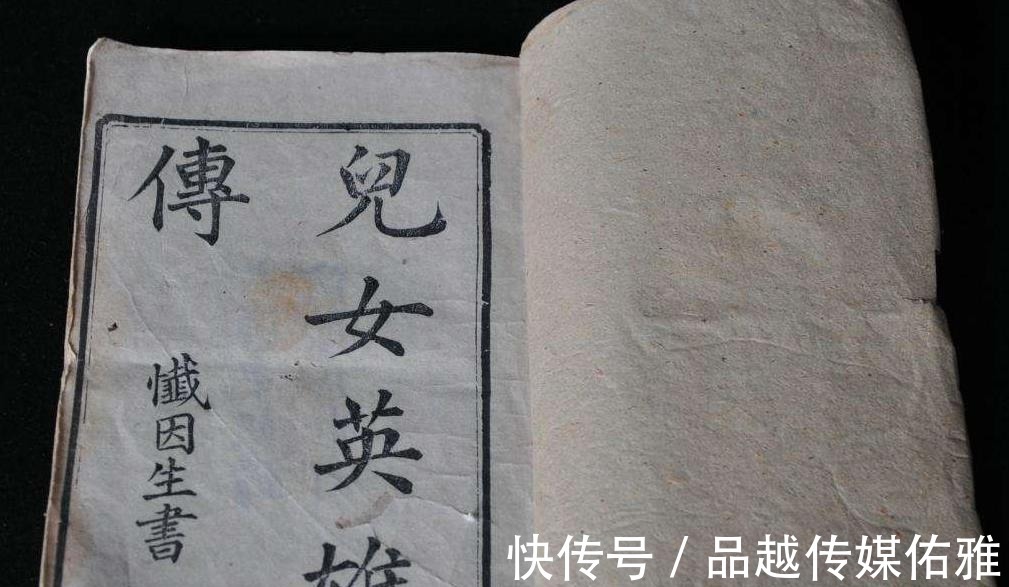 兒女英雄
傳
懺因生書
快传号 / 品越传媒佑雅